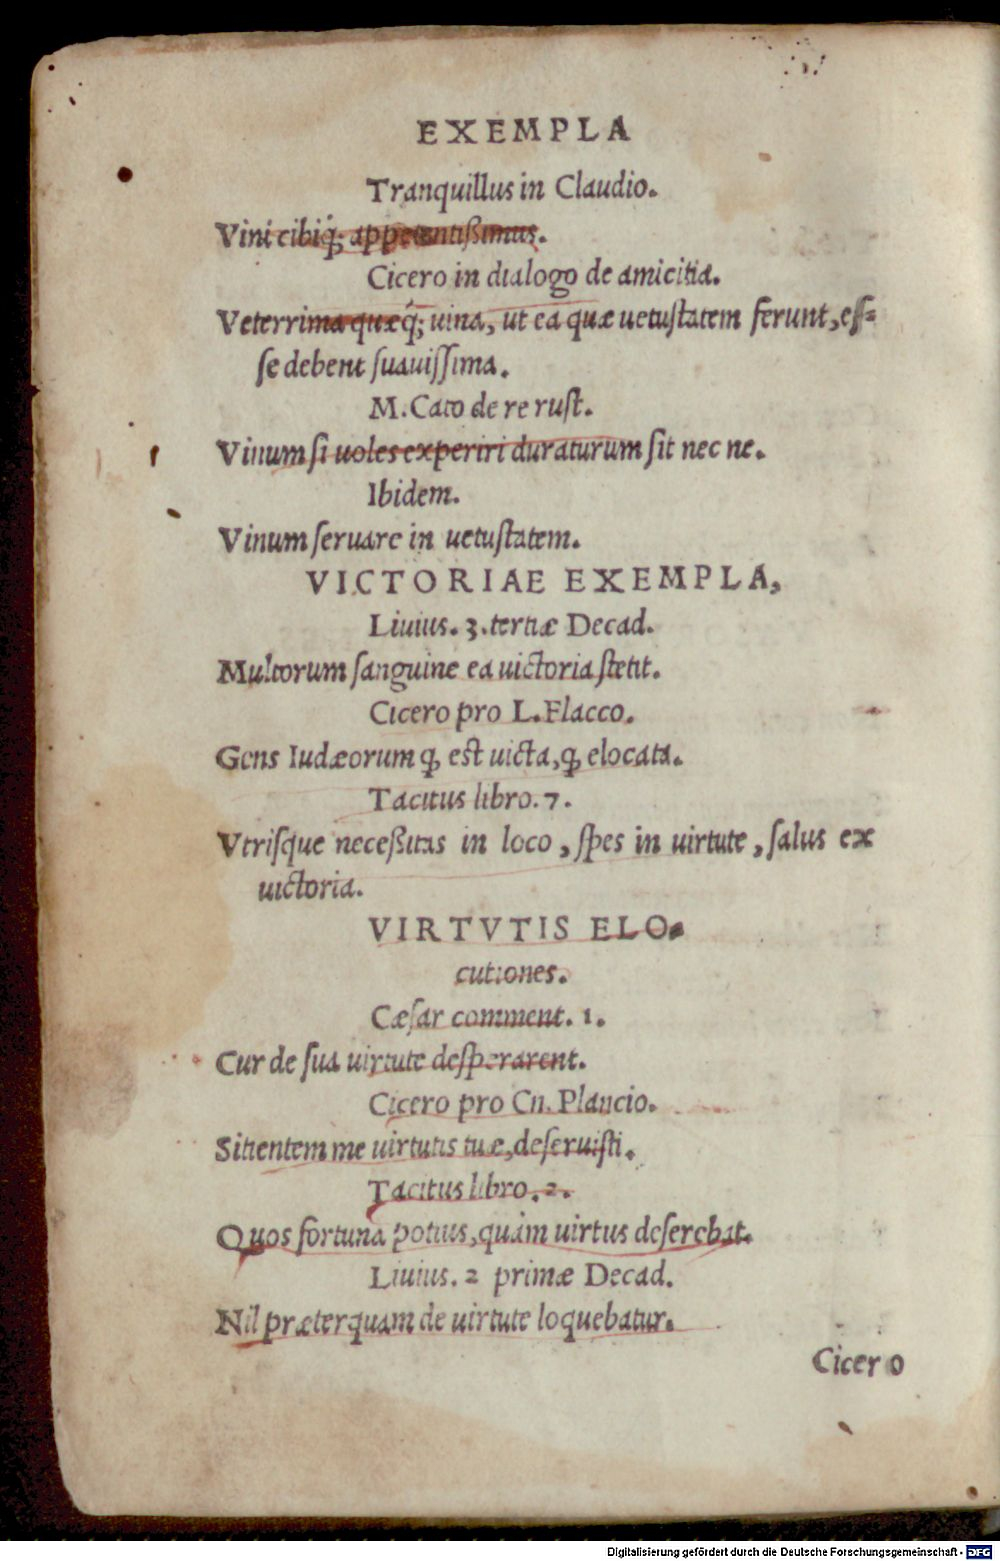 EXEMPLA
Tranquillus in Claudio.
Vini cibiq́; appetentißimus.
Cicero in dialogo de amicitia.
Veterrima quæq́; uina, ut ea quæ uetuſtatem ferunt, eſ-
ſe debent ſuauiſſima.
M. Cato de re ruſt.
Vinum ſi uoles experiri duraturum ſit nec ne.
Ibidem.
Vinum ſeruare in uetuſtatem.
VICTORIAE EXEMPLA,
Liuius. 3. tertiæ Decad.
Multorum ſanguine ea uictoria ſtetit.
Cicero pro L. Flacco.
Gens Iudæorum ꝙ est uicta, ꝙ elocata.
Tacitus libro. 7.
Vtriſque neceßitas in loco, ſpes in uirtute, ſalus ex
uictoria.
VIRTVTIS ELO-
cutiones.
Cæſar comment. 1.
Cur de ſua uirtute deſperarent.
Cicero pro Cn. Plancio.
Sitientem me uirtutis tuæ, deſeruiſti.
Tacitus libro. 2.
Quos fortuna potius, quàm uirtus deſerebat.
Liuius. 2 primæ Decad.
Nil præterquam de uirtute loquebatur.
Cicero
Digitalisierung gefördert durch die Deutsche Forschungsgemeinschaft - DFG